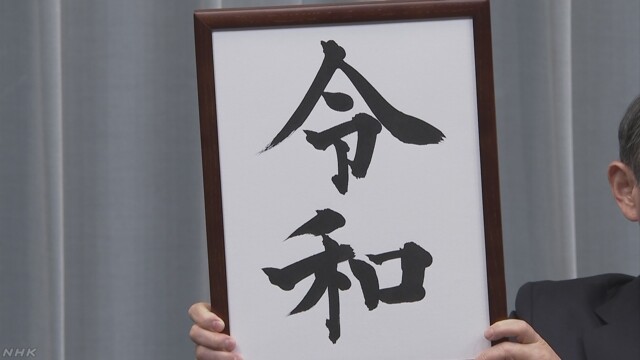 令
和
NHK